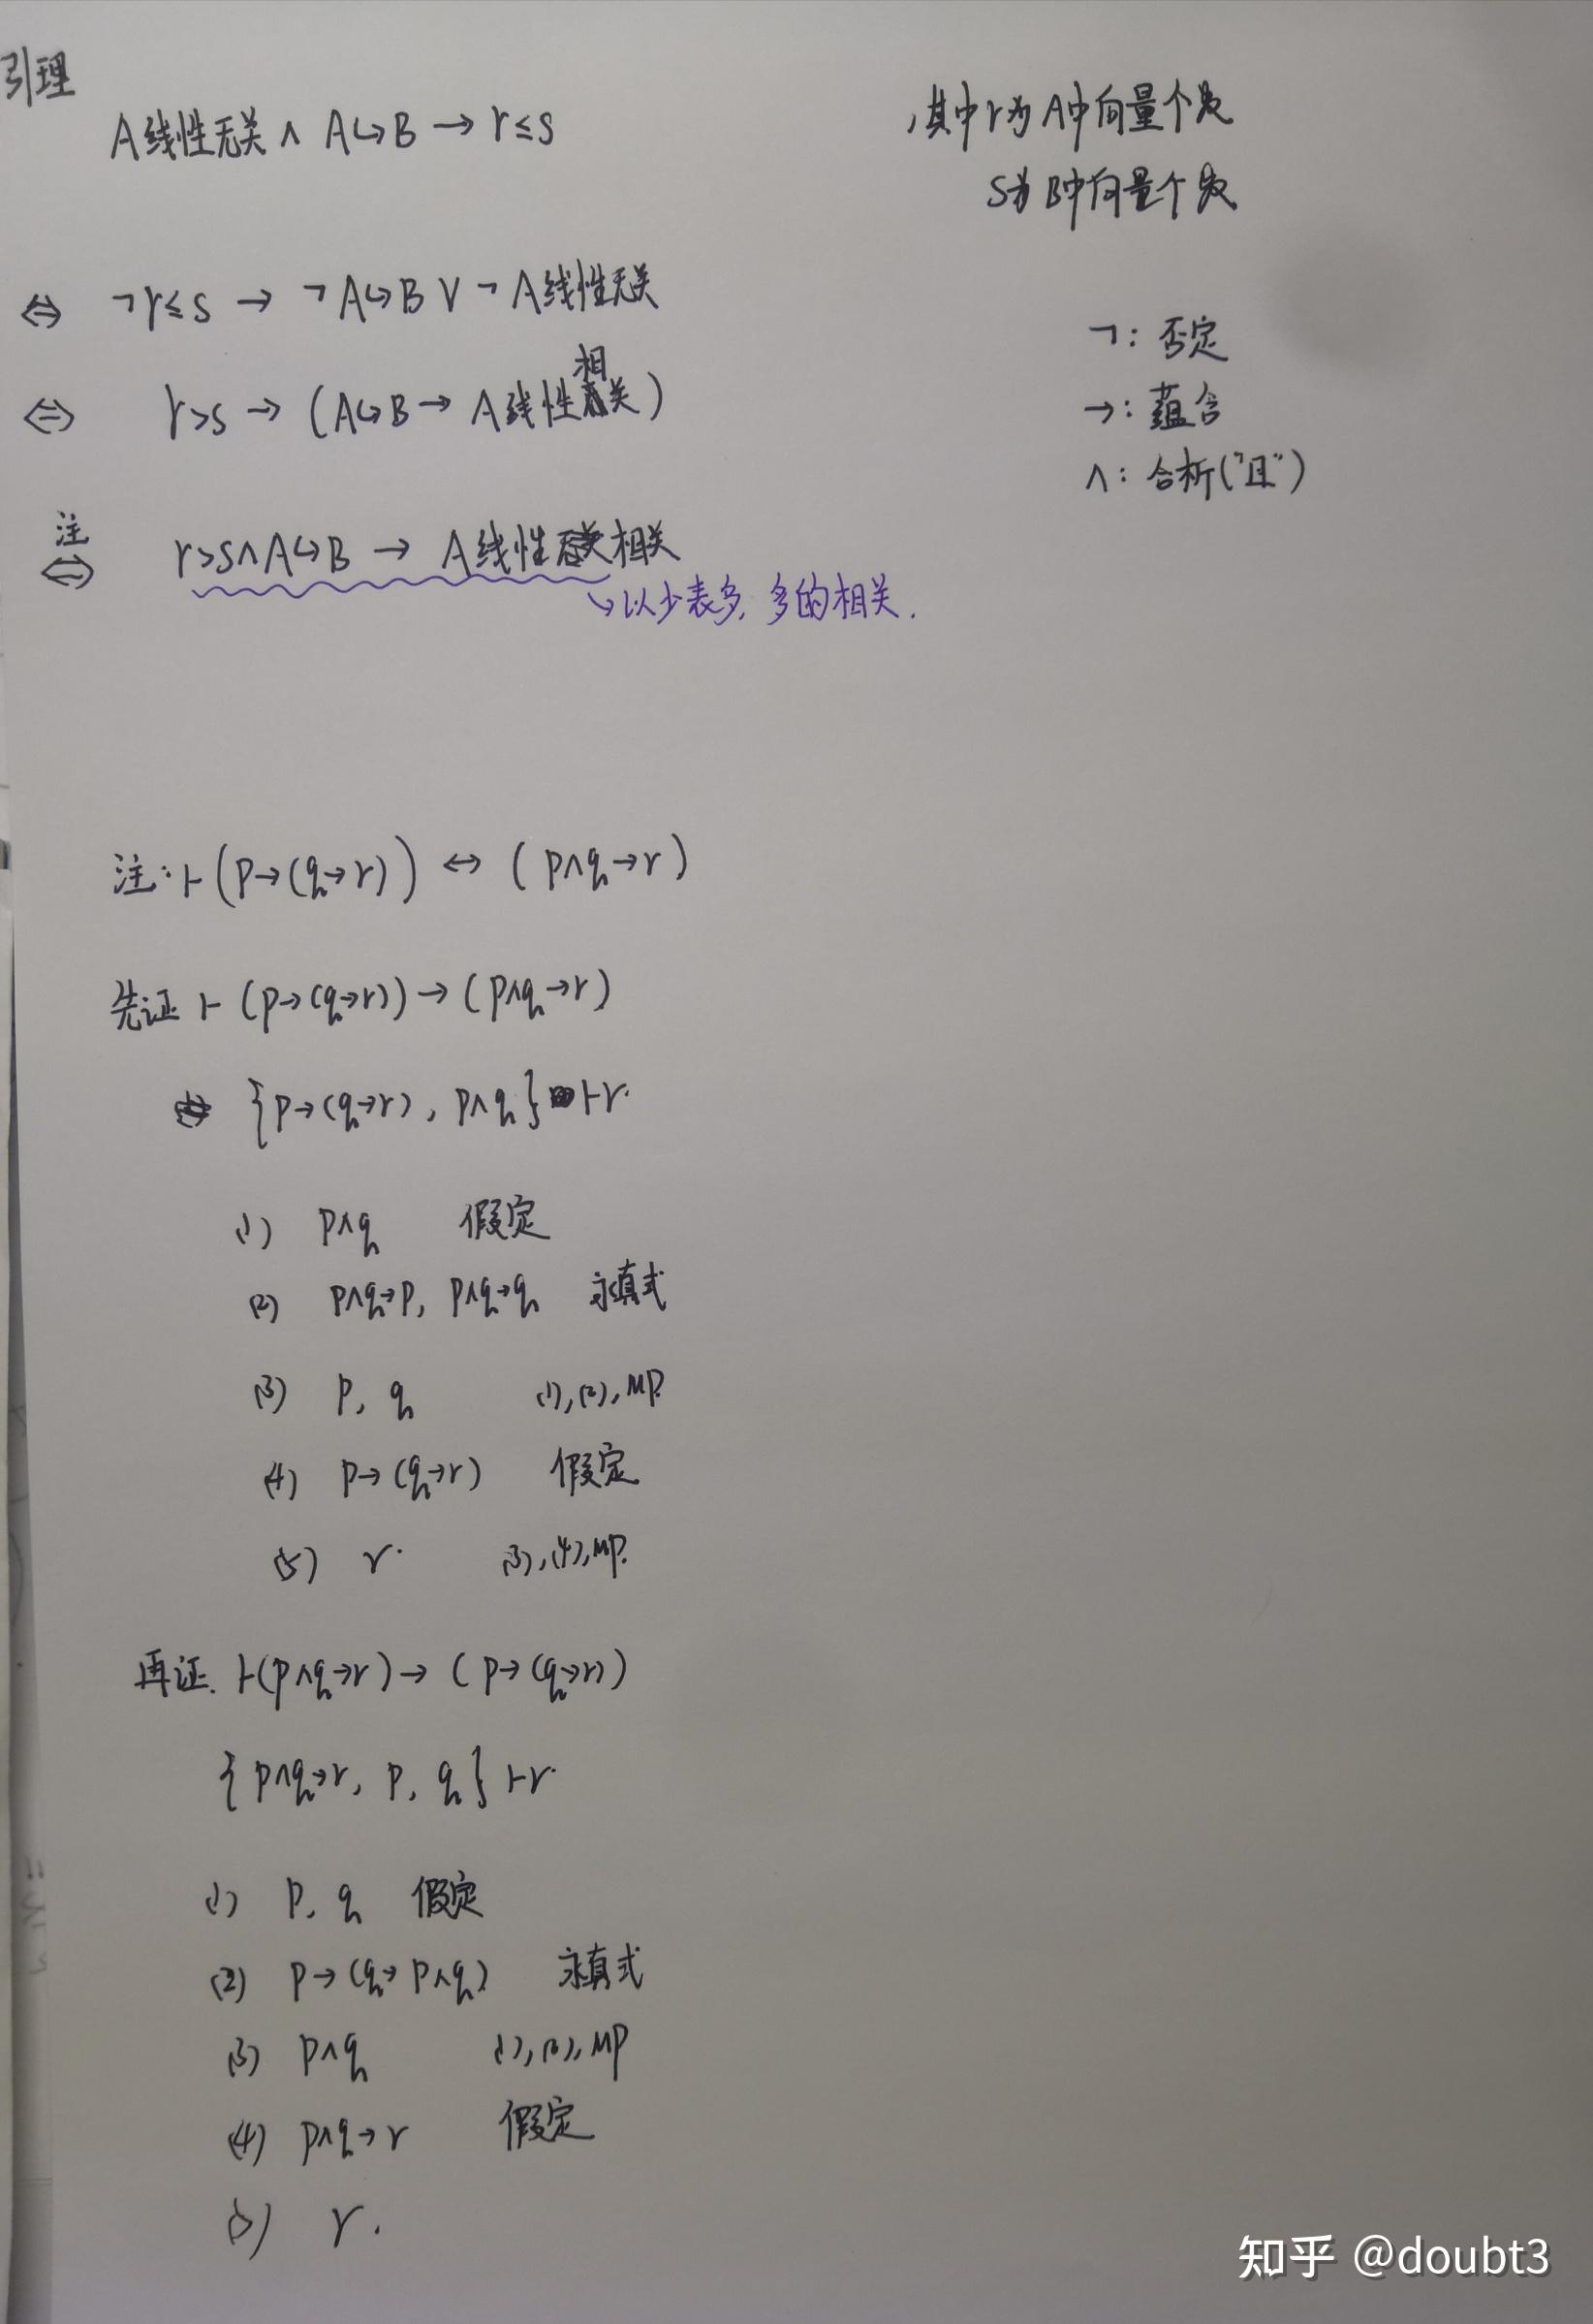 引理
A线性无关 ∧ A↪B → r≤s ,其中r为A中向量个数
s为B中向量个数
⇔ ¬r≤s → ¬A↪B ∨ ¬A线性无关
¬: 否定
⇔ r>s → (A↪B → A线性相关)
→: 蕴含
∧: 合析("且")
注
⇔ r>s∧A↪B → A线性相关
↘以少表多, 多的相关.
注: ⊢(p→(q→r)) ↔ (p∧q→r)
先证 ⊢ (p→(q→r))→(p∧q→r)
{p→(q→r), p∧q} ⊢r.
(1) p∧q 假定
(2) p∧q→p, p∧q→q 永真式
(3) p, q (1),(2),MP.
(4) p→(q→r) 假定
(5) r. (3),(4),MP.
再证. ⊢(p∧q→r)→(p→(q→r))
{p∧q→r, p, q}⊢r.
(1) p, q 假定
(2) p→(q→p∧q) 永真式
(3) p∧q (1),(2),MP
(4) p∧q→r 假定
(5) r.
知乎 @doubt3